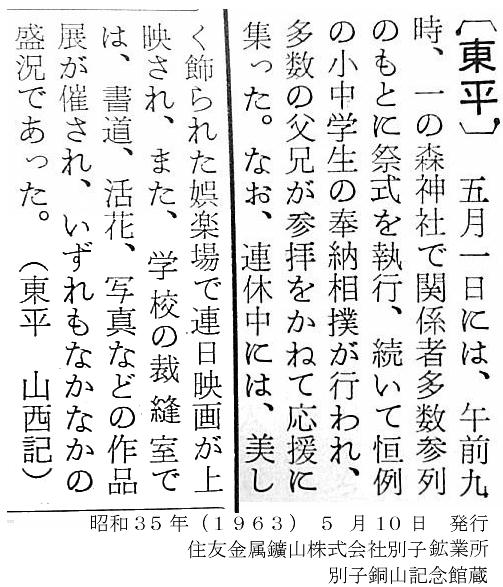 〔東平〕　五月一日には、午前九
時、一の森神社で関係者多数参列
のもとに祭式を執行、続いて恒例
の小中学生の奉納相撲が行われ、
多数の父兄が参拝をかねて応援に
集った。なお、連休中には、美し
く飾られた娯楽場で連日映画が上
映され、また、学校の裁縫室で
は、書道、活花、写真などの作品
展が催され、いずれもなかなかの
盛況であった。（東平　山西記）
昭和３５年（１９６３）５月１０日　発行
住友金属鑛山株式会社別子鉱業所
別子銅山記念館蔵